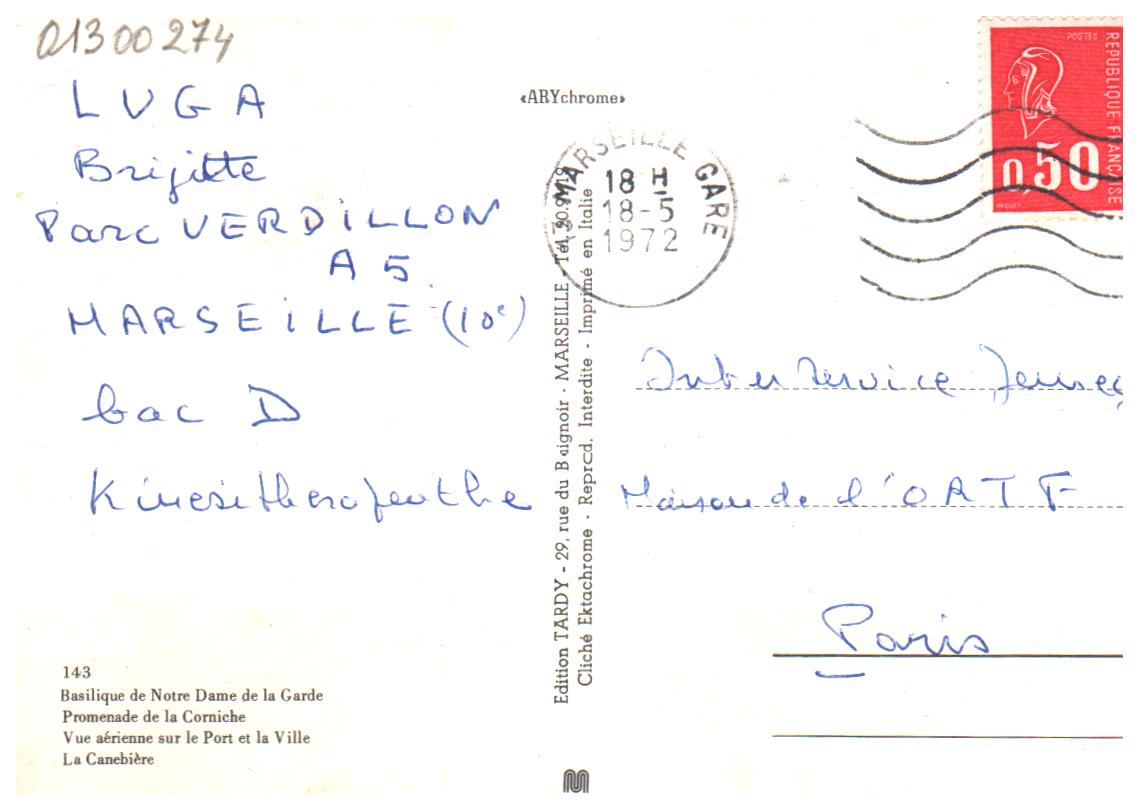 01300274
LUGA
Brigitte
Parc VERDILLON
A 5
MARSEILLE (10e)
bac D
Kinesitherapeuthe
143
Basilique de Notre Dame de la Garde
Promenade de la Corniche
Vue aérienne sur le Port et la Ville
La Canebière
«ARYchrome»
Edition TARDY - 29, rue du Baignoir - MARSEILLE - Tél.
Cliché Ektachrome - Reprod. Interdite - Imprimé en Italie
MARSEILLE GARE
18 H
18-5
1972
POSTES
REPUBLIQUE FRANÇAISE
0,50
Inter Service Jeunes
Maison de l'ORTF
Paris